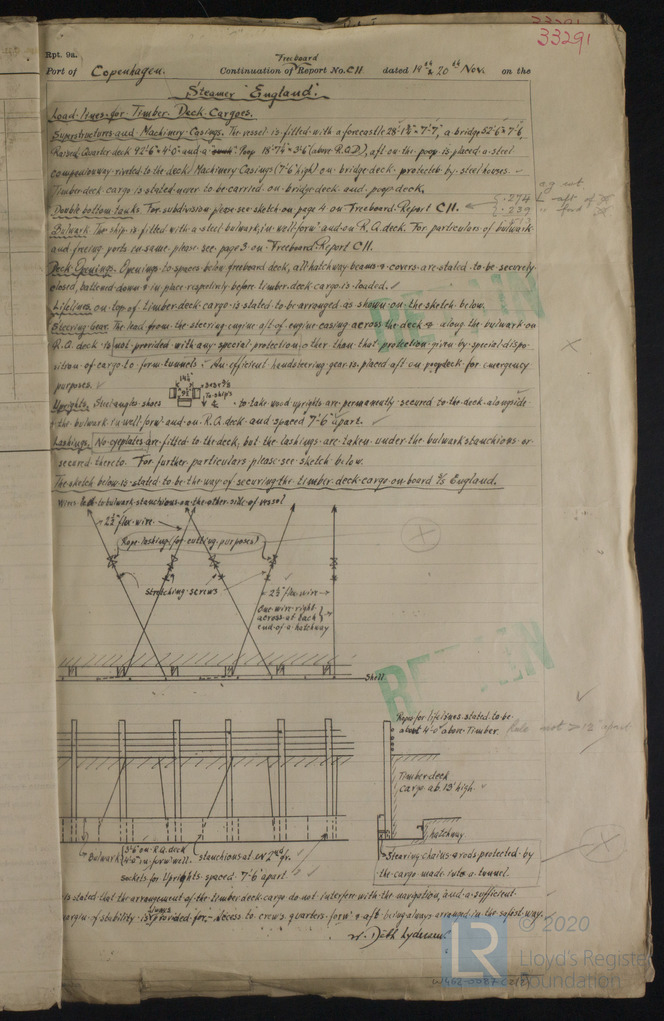 33291
33291
Rpt. 9a.
Port of Copenhagen. Continuation of Freeboard Report No. C11 dated 19th & 20th Nov. on the
Steamer "England".
Load-lines for Timber Deck Cargoes.
Superstructures and Machinery Casings. The vessel is fitted with a forecastle 28'-1½" × 7'-7", a bridge 52'-6" × 7'-6",
Raised Quarter deck 92'-6" × 4'-0" and a Poop 18'-7½" × 3'-6" (above R.Q.D.), aft on the poop is placed a steel
companionway riveted to the deck. Machinery Casings (7'-6" high) on bridge deck protected by steel houses.
Timber deck cargo is stated never to be carried on bridge deck and poop deck.
Double bottom tanks. For subdivision please see sketch on page 4 on Freeboard Report C11.
.274 aft of
.239 " ford
Bulwark. The ship is fitted with a steel bulwark in well forw'd and on R.Q. deck. For particulars of bulwark
and freeing ports in same please see page 3 on Freeboard Report C11.
Deck Openings. Openings to spaces below freeboard deck, all hatchway beams & covers are stated to be securely
closed, battened down & in place respectively before timber deck cargo is loaded.
Lifelines on top of timber deck cargo is stated to be arranged as shown on the sketch below.
Steering Gear. The lead from the steering engine aft of engine casing across the deck & along the bulwark on
R.Q. deck is not provided with any special protection other than that protection given by special dispo-
sition of cargo to form tunnels. An efficient handsteering gear is placed aft on poopdeck for emergency
purposes.
Uprights. Steel angle shoes to take wood uprights are permanently secured to the deck alongside
the bulwark in well forw'd and on R.Q. deck and spaced 7'-6" apart.
Lashings. No eyeplates are fitted to the deck, but the lashings are taken under the bulwark stanchions or
secured thereto. For further particulars please see sketch below.
The sketch below is stated to be the way of securing the timber deck cargo on board S/S England.
Wires led to bulwark stanchions on the other side of vessel
2½" flex. wire.
Rope lashing (for cutting purposes)
Stretching screws
2½" flex. wire
One wire right
across at each
end of a hatchway
Shell.
Ropes for lifelines stated to be
about 4'-0" above Timber.
not > 12" apart
Timber deck
cargo ab. 13' high.
hatchway
Bulwark { 3'-6" on R.Q. deck
4'-0" in forw. well. stanchions at ev. 2nd fr.
Sockets for Uprights spaced 7'-6" apart
Stearing chains & rods protected by
the cargo made into a tunnel.
is stated that the arrangement of the timber deck cargo do not interfere with the navigation, and a sufficient
margin of stability is always provided for, access to crew's quarters forw'd & aft being always arranged in the safest way.
© 2020
LR
Lloyd's Register
Foundation